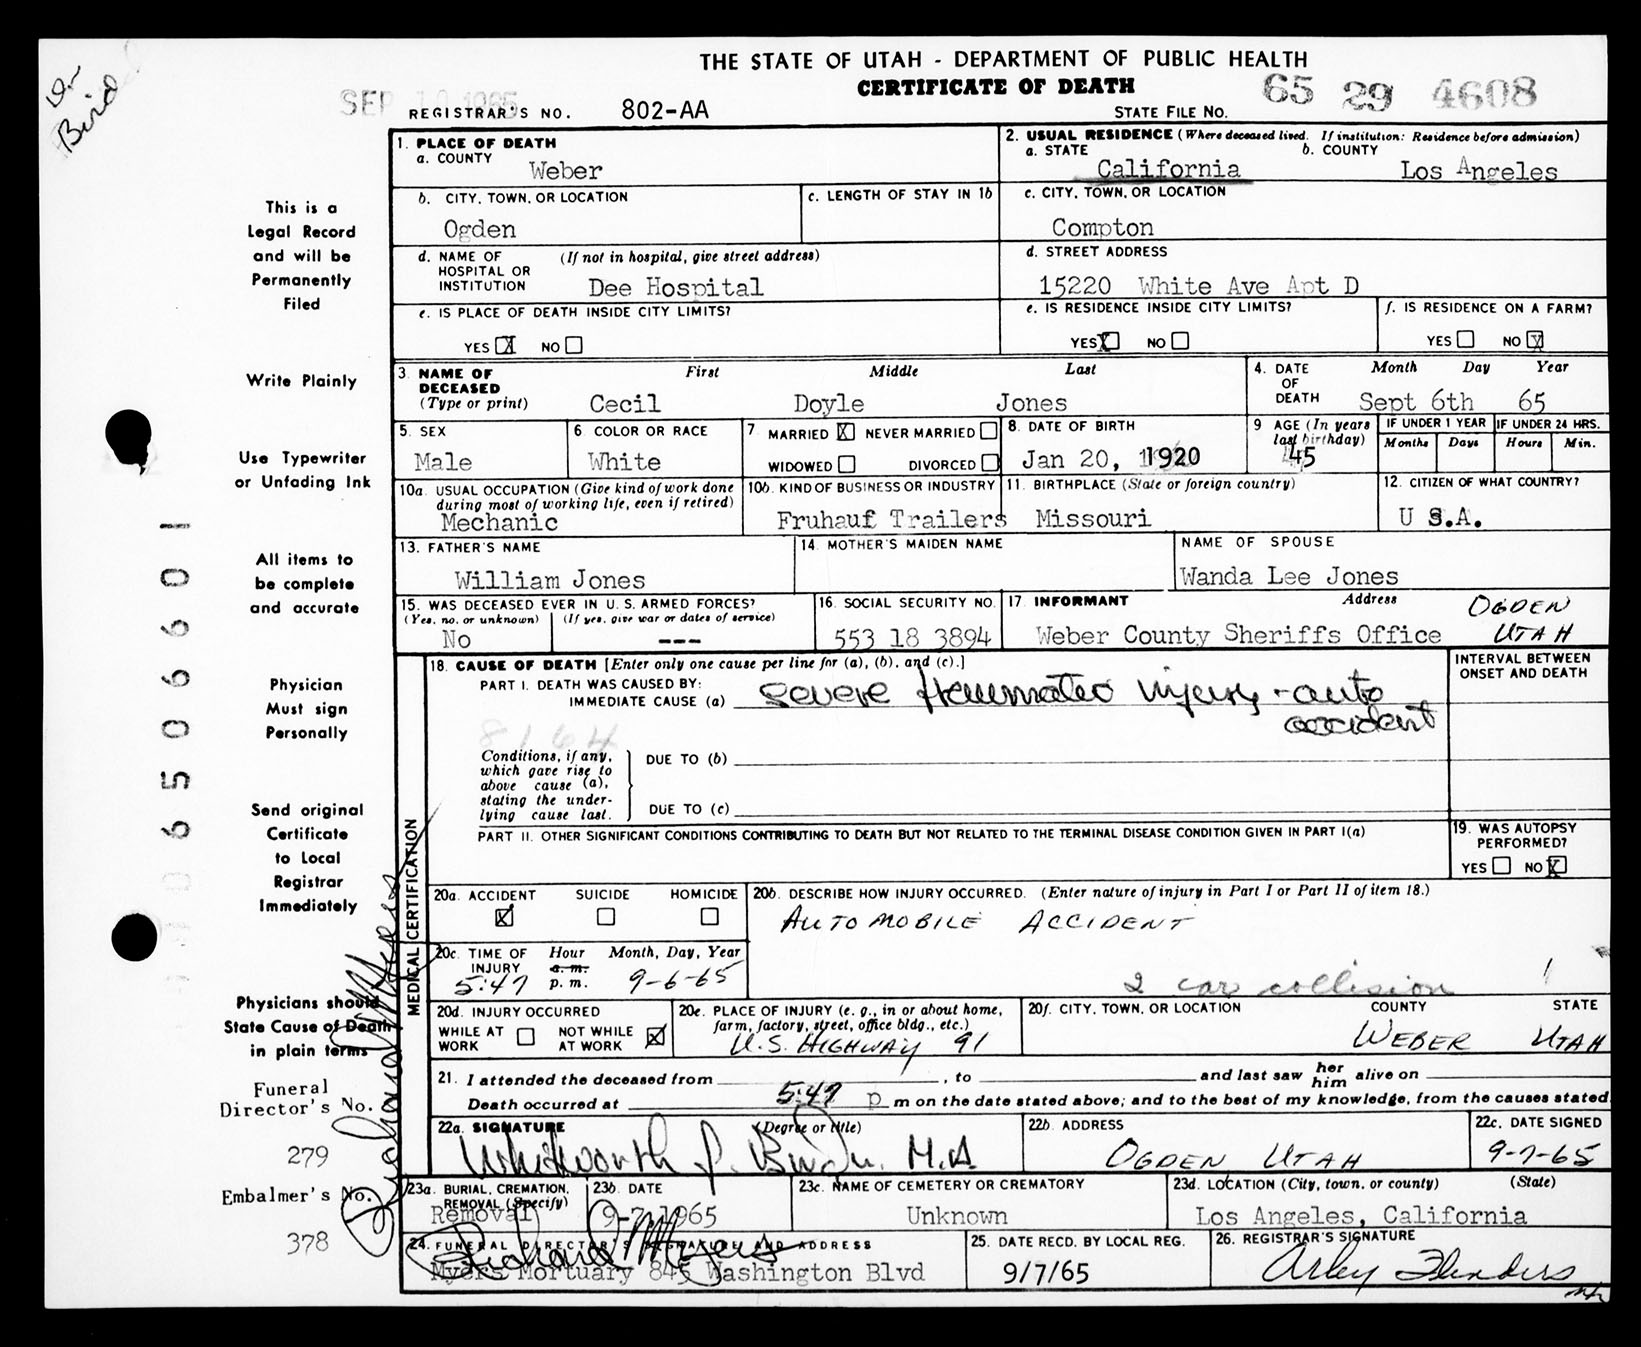 Dr
Bird
THE STATE OF UTAH - DEPARTMENT OF PUBLIC HEALTH
CERTIFICATE OF DEATH
SEP 10 1965
REGISTRAR'S NO. 802-AA
STATE FILE NO. 65 29 4608
1. PLACE OF DEATH
a. COUNTY
Weber
2. USUAL RESIDENCE (Where deceased lived. If institution: Residence before admission)
a. STATE
California
b. COUNTY
Los Angeles
b. CITY, TOWN, OR LOCATION
Ogden
c. LENGTH OF STAY IN 1b
c. CITY, TOWN, OR LOCATION
Compton
d. NAME OF HOSPITAL OR INSTITUTION
(If not in hospital, give street address)
Dee Hospital
d. STREET ADDRESS
15220 White Ave Apt D
e. IS PLACE OF DEATH INSIDE CITY LIMITS?
YES X NO
e. IS RESIDENCE INSIDE CITY LIMITS?
YES X NO
f. IS RESIDENCE ON A FARM?
YES NO X
3. NAME OF DECEASED
(Type or print)
First Middle Last
Cecil Doyle Jones
4. DATE OF DEATH
Month Day Year
Sept 6th 65
5. SEX
Male
6. COLOR OR RACE
White
7. MARRIED X NEVER MARRIED
WIDOWED DIVORCED
8. DATE OF BIRTH
Jan 20, 1920
9 AGE (In years last birthday)
45
IF UNDER 1 YEAR
Months Days
IF UNDER 24 HRS.
Hours Min.
10a. USUAL OCCUPATION (Give kind of work done
during most of working life, even if retired)
Mechanic
10b. KIND OF BUSINESS OR INDUSTRY
Fruhauf Trailers
11. BIRTHPLACE (State or foreign country)
Missouri
12. CITIZEN OF WHAT COUNTRY?
U S.A.
13. FATHER'S NAME
William Jones
14. MOTHER'S MAIDEN NAME
NAME OF SPOUSE
Wanda Lee Jones
15. WAS DECEASED EVER IN U. S. ARMED FORCES?
(Yes, no, or unknown) (If yes, give war or dates of service)
No ---
16. SOCIAL SECURITY NO.
553 18 3894
17. INFORMANT Address
Weber County Sheriffs Office
OGDEN
UTAH
MEDICAL CERTIFICATION
18. CAUSE OF DEATH [Enter only one cause per line for (a), (b), and (c).]
PART I. DEATH WAS CAUSED BY:
IMMEDIATE CAUSE (a) severe traumatic injury - auto
accident
INTERVAL BETWEEN
ONSET AND DEATH
8164
Conditions, if any,
which gave rise to
above cause (a),
stating the under-
lying cause last.
DUE TO (b)
DUE TO (c)
PART II. OTHER SIGNIFICANT CONDITIONS CONTRIBUTING TO DEATH BUT NOT RELATED TO THE TERMINAL DISEASE CONDITION GIVEN IN PART I(a)
19. WAS AUTOPSY
PERFORMED?
YES NO X
20a. ACCIDENT SUICIDE HOMICIDE
X
20b. DESCRIBE HOW INJURY OCCURRED. (Enter nature of injury in Part I or Part II of item 18.)
AUTOMOBILE ACCIDENT
2 car collision
20c. TIME OF INJURY
Hour Month, Day, Year
a. m.
5:47 p. m. 9-6-65
20d. INJURY OCCURRED
WHILE AT WORK NOT WHILE AT WORK X
20e. PLACE OF INJURY (e. g., in or about home,
farm, factory, street, office bldg., etc.)
U.S. HIGHWAY 91
20f. CITY, TOWN, OR LOCATION COUNTY STATE
WEBER UTAH
21. I attended the deceased from , to and last saw her him alive on
Death occurred at 5:47 p m on the date stated above; and to the best of my knowledge, from the causes stated.
22a. SIGNATURE (Degree or title)
Whitworth Bird M.D.
22b. ADDRESS
OGDEN UTAH
22c. DATE SIGNED
9-7-65
23a. BURIAL, CREMATION, REMOVAL (Specify)
Removal
23b. DATE
9-7-1965
23c. NAME OF CEMETERY OR CREMATORY
Unknown
23d. LOCATION (City, town, or county) (State)
Los Angeles, California
24. FUNERAL DIRECTOR'S SIGNATURE AND ADDRESS
Richard Myers
Myers Mortuary 845 Washington Blvd
25. DATE RECD. BY LOCAL REG.
9/7/65
26. REGISTRAR'S SIGNATURE
Arley Flinders
This is a
Legal Record
and will be
Permanently
Filed
Write Plainly
Use Typewriter
or Unfading Ink
All items to
be complete
and accurate
Physician
Must sign
Personally
Send original
Certificate
to Local
Registrar
Immediately
Physicians should
State Cause of Death
in plain terms
Funeral
Director's No.
279
Embalmer's No.
378
Richard Myers